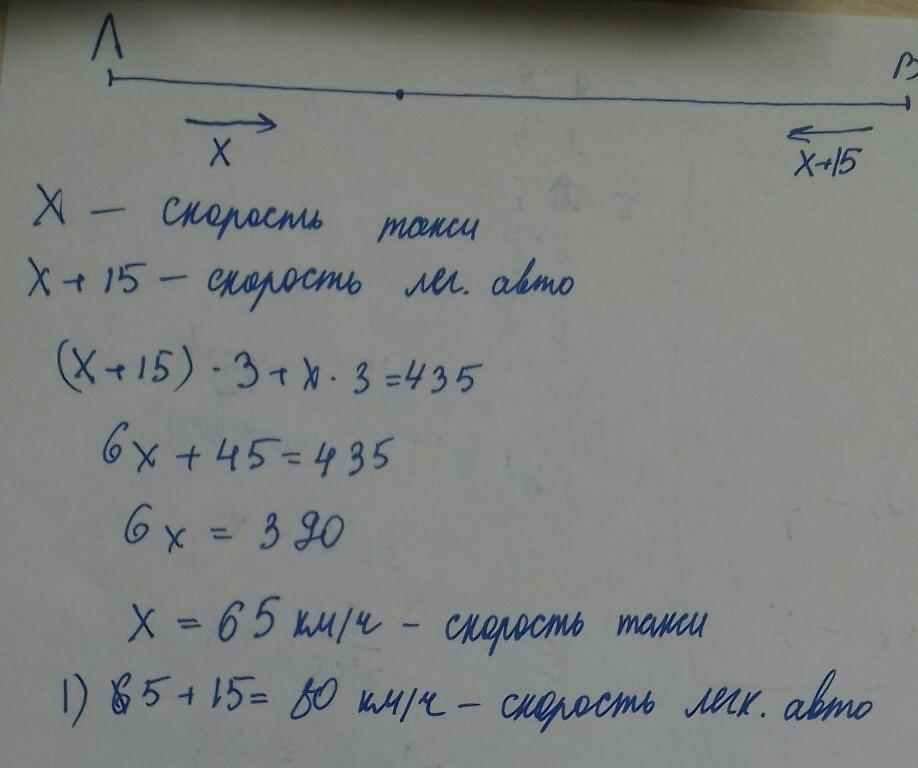 A
B
X
X+15
X — скорость такси
X + 15 — скорость лег. авто
(X + 15) · 3 + X · 3 = 435
6x + 45 = 435
6x = 390
X = 65 км/ч - скорость такси
1) 65 + 15 = 80 км/ч - скорость легк. авто